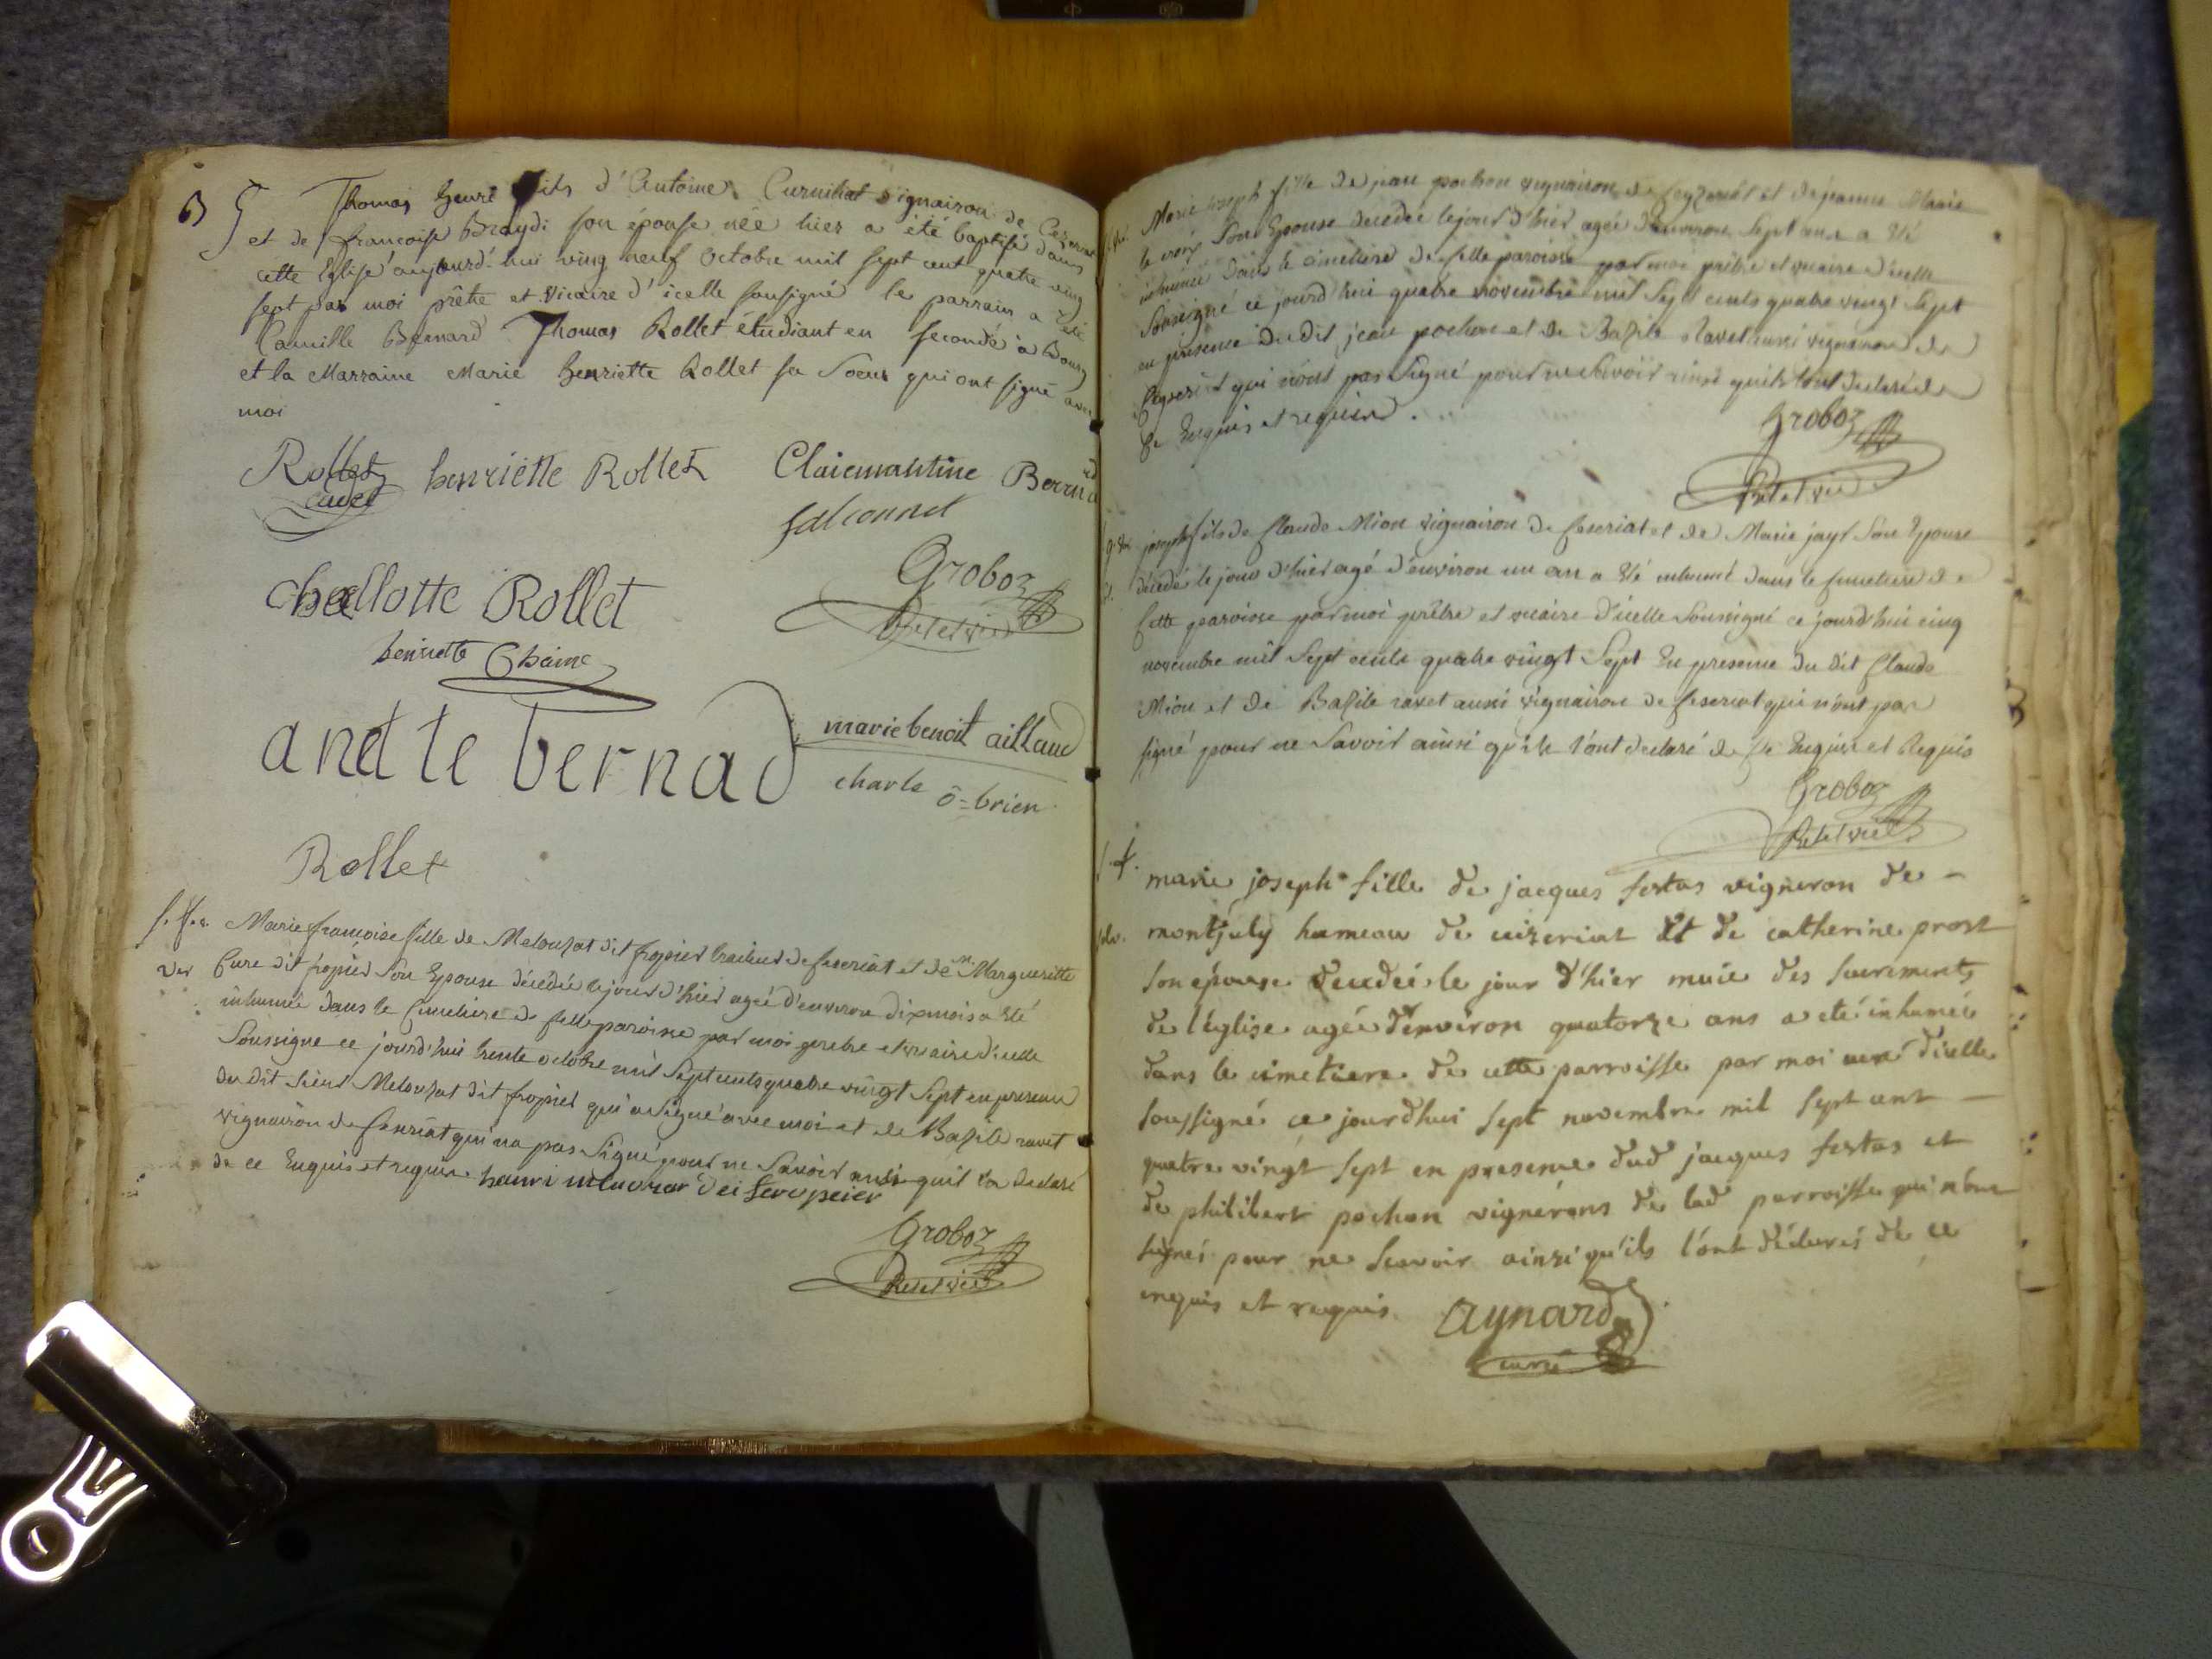 B G Thomas henri fils d'Antoine Curnillat vignairon de Ceseriat
et de francoise Braydi son épouse née hier a été baptisé dans
cette Eglise aujourd'hui ving neuf octobre mil sept cent quatre ving
sept par moi prêtre et vicaire d'icelle sousigné le parrain a été
Camille Bernard Thomas Rollet étudiant en seconde à Bourg
et la Marraine Marie henriette Rollet sa Soeur qui ont signé avec
moi
Rollet cadet henriette Rollet Bernard
falconnet
charlotte Rollet Groboz
Pre et vic
henriette Chaine
bernad marie benoit aillaud
charle ô=brien
Rollet
Marie francoise fille de Melouzat dit fropier de seseriat et de M. Margueritte
Cure dit fropier son Epouse décédée le jour d'hier agée d'environ dix mois a été
inhumée dans le Cimetiere de cette paroisse par moi pretre et vicaire d'icelle
Soussigne ce jourd'hui trente octobre mil Sept cents quatre vingt Sept en presence
du dit sieur Melouzat dit fropier qui a signé avec moi et de Bazile ravet
vignairon de seseriat qui na pas Signé pour ne Savoir ainsi quil la declaré
de ce Enquis et requis
Groboz
Pre et vic
Marie joseph fille de jean pochon vignairon de et de jeanne Marie
Son Epouse decedée le jour d'hier agée d'environ Sept ans a été
inhumée dans le cimetiere de cette paroisse par moi prêtre et vicaire d'icelle
Soussigné ce jourd'hui quatre novembre mil Sept cents quatre vingt Sept
en presence du dit jean pochon et de Bazile Ravet aussi vignairon de
qui nont pas Signé pour ne Savoir ainsi quils lont declaré de
Ce Enquis et requis.
Groboz
Pre et vic
joseph fils de Claude Mion vignairon de seseriat et de Marie jayr Son Epouse
décedé le jour d'hier agé d'environ un an a été inhumé dans le cimetiere de
Cette paroisse par moi prêtre et vicaire d'icelle Soussigné ce jourd'hui cinq
novembre mil Sept cents quatre vingt Sept En presence du dit Claude
Mion et de Bazile ravet aussi vignairon de seseriat qui n'ont pas
signé pour ne Savoir ainsi qu'ils l'ont declaré de Ce Enquis et Requis
Groboz
Pre et vic
marie joseph fille de jacques fortas vigneron de
montjuly hameau de ceizeriat Et de catherine prost
son epouse decedée le jour d'hier munie des sacrements
de l'église agée d'environ quatorze ans a eté inhumée
dans le cimetiere de cette parroisse par moi curé d'icelle
soussigné ce jourd'hui sept novembre mil sept cent
quatre vingt sept en presence dud jacques fortas et
de philibert pochon vignerons de lad parroisse qui n'ont
signés pour ne scavoir ainsi qu'ils l'ont déclarés de ce
enquis et requis. Aynard
curé